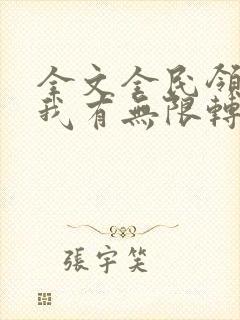 全文全民領
我有無限轉
張宇笑